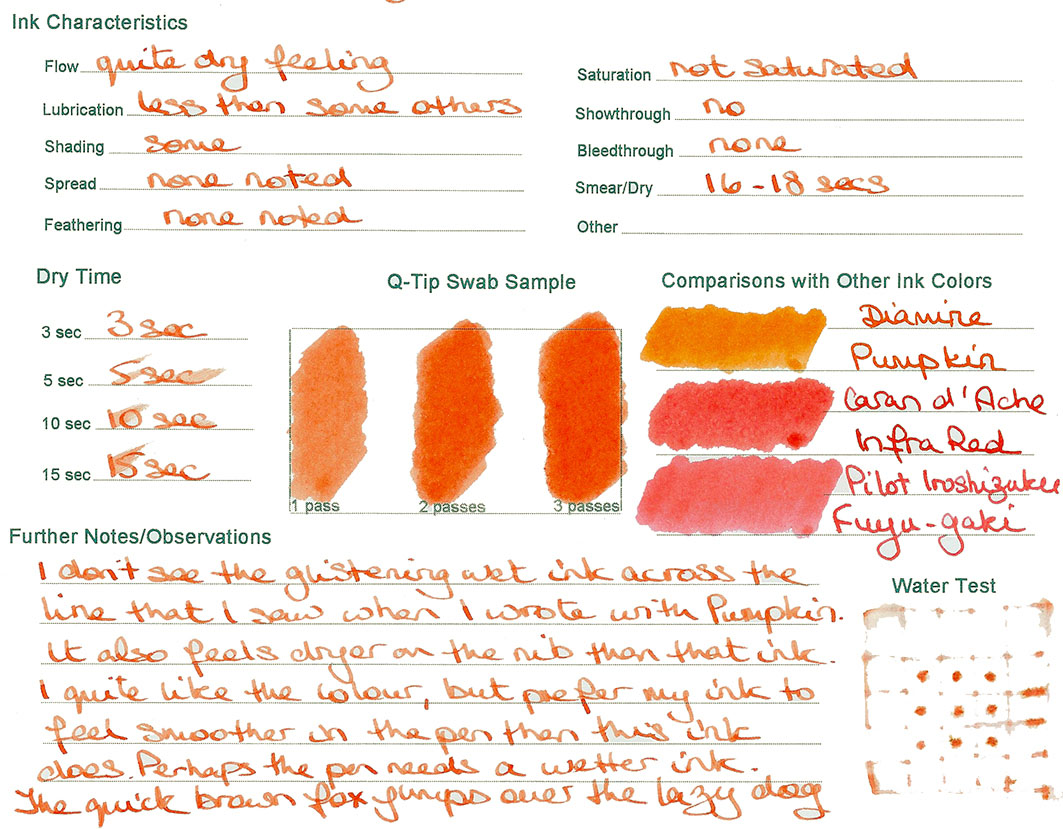 Ink Characteristics
Flow quite dry feeling
Lubrication less than some others
Shading some
Spread none noted
Feathering none noted
Saturation not saturated
Showthrough no
Bleedthrough none
Smear/Dry 16-18 secs
Other
Dry Time
3 sec 3 sec
5 sec 5 sec
10 sec 10 sec
15 sec 15 sec
Q-Tip Swab Sample
1 pass 2 passes 3 passes
Comparisons with Other Ink Colors
Diamine
Pumpkin
Caran d'Ache
Infra Red
Pilot Iroshizuku
Fuyu-gaki
Further Notes/Observations
I don't see the glistening wet ink across the
line that I saw when I wrote with Pumpkin.
It also feels dryer on the nib than that ink.
I quite like the colour, but prefer my ink to
feel smoother in the pen than this ink
does. Perhaps the pen needs a wetter ink.
The quick brown fox jumps over the lazy dog
Water Test